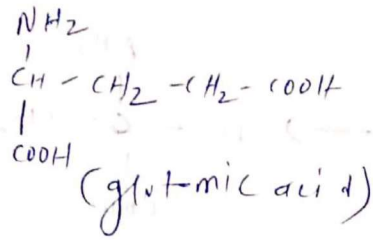 NH2
CH - CH2 - CH2 - COOH
COOH
(glutmic acid)